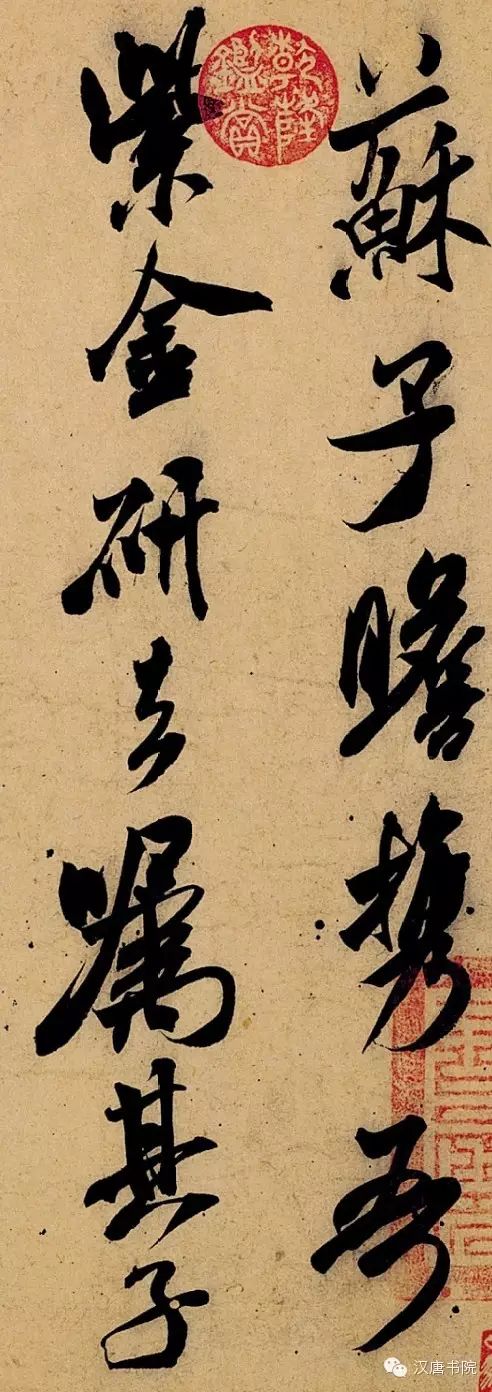 蘇子瞻携吾
紫金研去嘱其子
乾隆鑑賞
汉唐书院